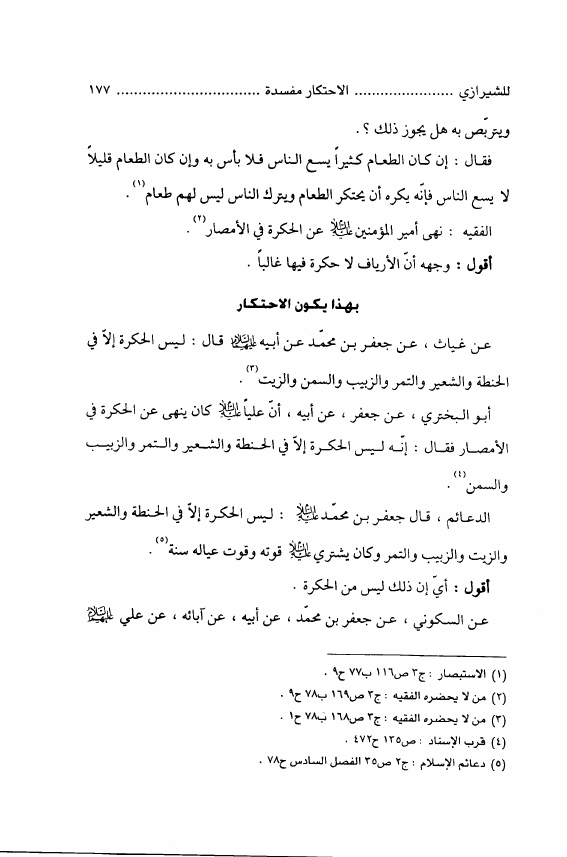 للشيرازي ....................... الاحتكار مفسدة ................................. ١٧٧
ويتربّص به هل يجوز ذلك ؟ .
فقـال : إن كـان الطعـام كـثيراً يسـع النـاس فـلا بـأس به وإن كان الطعام قليلاً
لا يسع الناس فإنّه يكره أن يحتكر الطعام ويترك الناس ليس لهم طعام(١) .
الفقيه : نهى أمير المؤمنين عليه السلام عن الحكرة في الأمصار(٢) .
أقول : وجهه أنّ الأرياف لا حكرة فيها غالباً .
بهذا يكون الاحتكار
عـن غيـاث ، عـن جعفـر بـن محمّـد عـن أبيـه عليهما السلام قـال : ليـس الحكرة إلاّ في
الحنطة والشعير والتمر والزبيب والسمن والزيت(٣) .
أبـو الـبختري ، عـن جعفـر ، عن أبيه ، أنّ علياً عليه السلام كان ينهى عن الحكرة في
الأمصـار فقـال : إنّـه لـيس الحكـرة إلاّ في الحـنطة والشـعير والـتمر والزبيـب
والسمن(٤) .
الدعـائم ، قـال جعفـر بـن محمّـد عليه السلام : لـيس الحكـرة إلاّ في الحـنطة والشعير
والزيت والزبيب والتمر وكان يشتري عليه السلام قوته وقوت عياله سنة(٥) .
أقول : أيّ إن ذلك ليس من الحكرة .
عـن السكوني ، عـن جعفـر بـن محمّـد ، عن أبيه ، عن آبائه ، عن علي عليهم السلام
(١) الاستبصار : ج٣ ص١١٦ ب٧٧ ح٩ .
(٢) من لا يحضره الفقيه : ج٣ ص١٦٩ ب٧٨ ح٩ .
(٣) من لا يحضره الفقيه : ج٣ ص١٦٨ ب٧٨ ح١ .
(٤) قرب الإسناد : ص١٣٥ ح٤٧٢ .
(٥) دعائم الإسلام : ج٢ ص٣٥ الفصل السادس ح٧٨ .